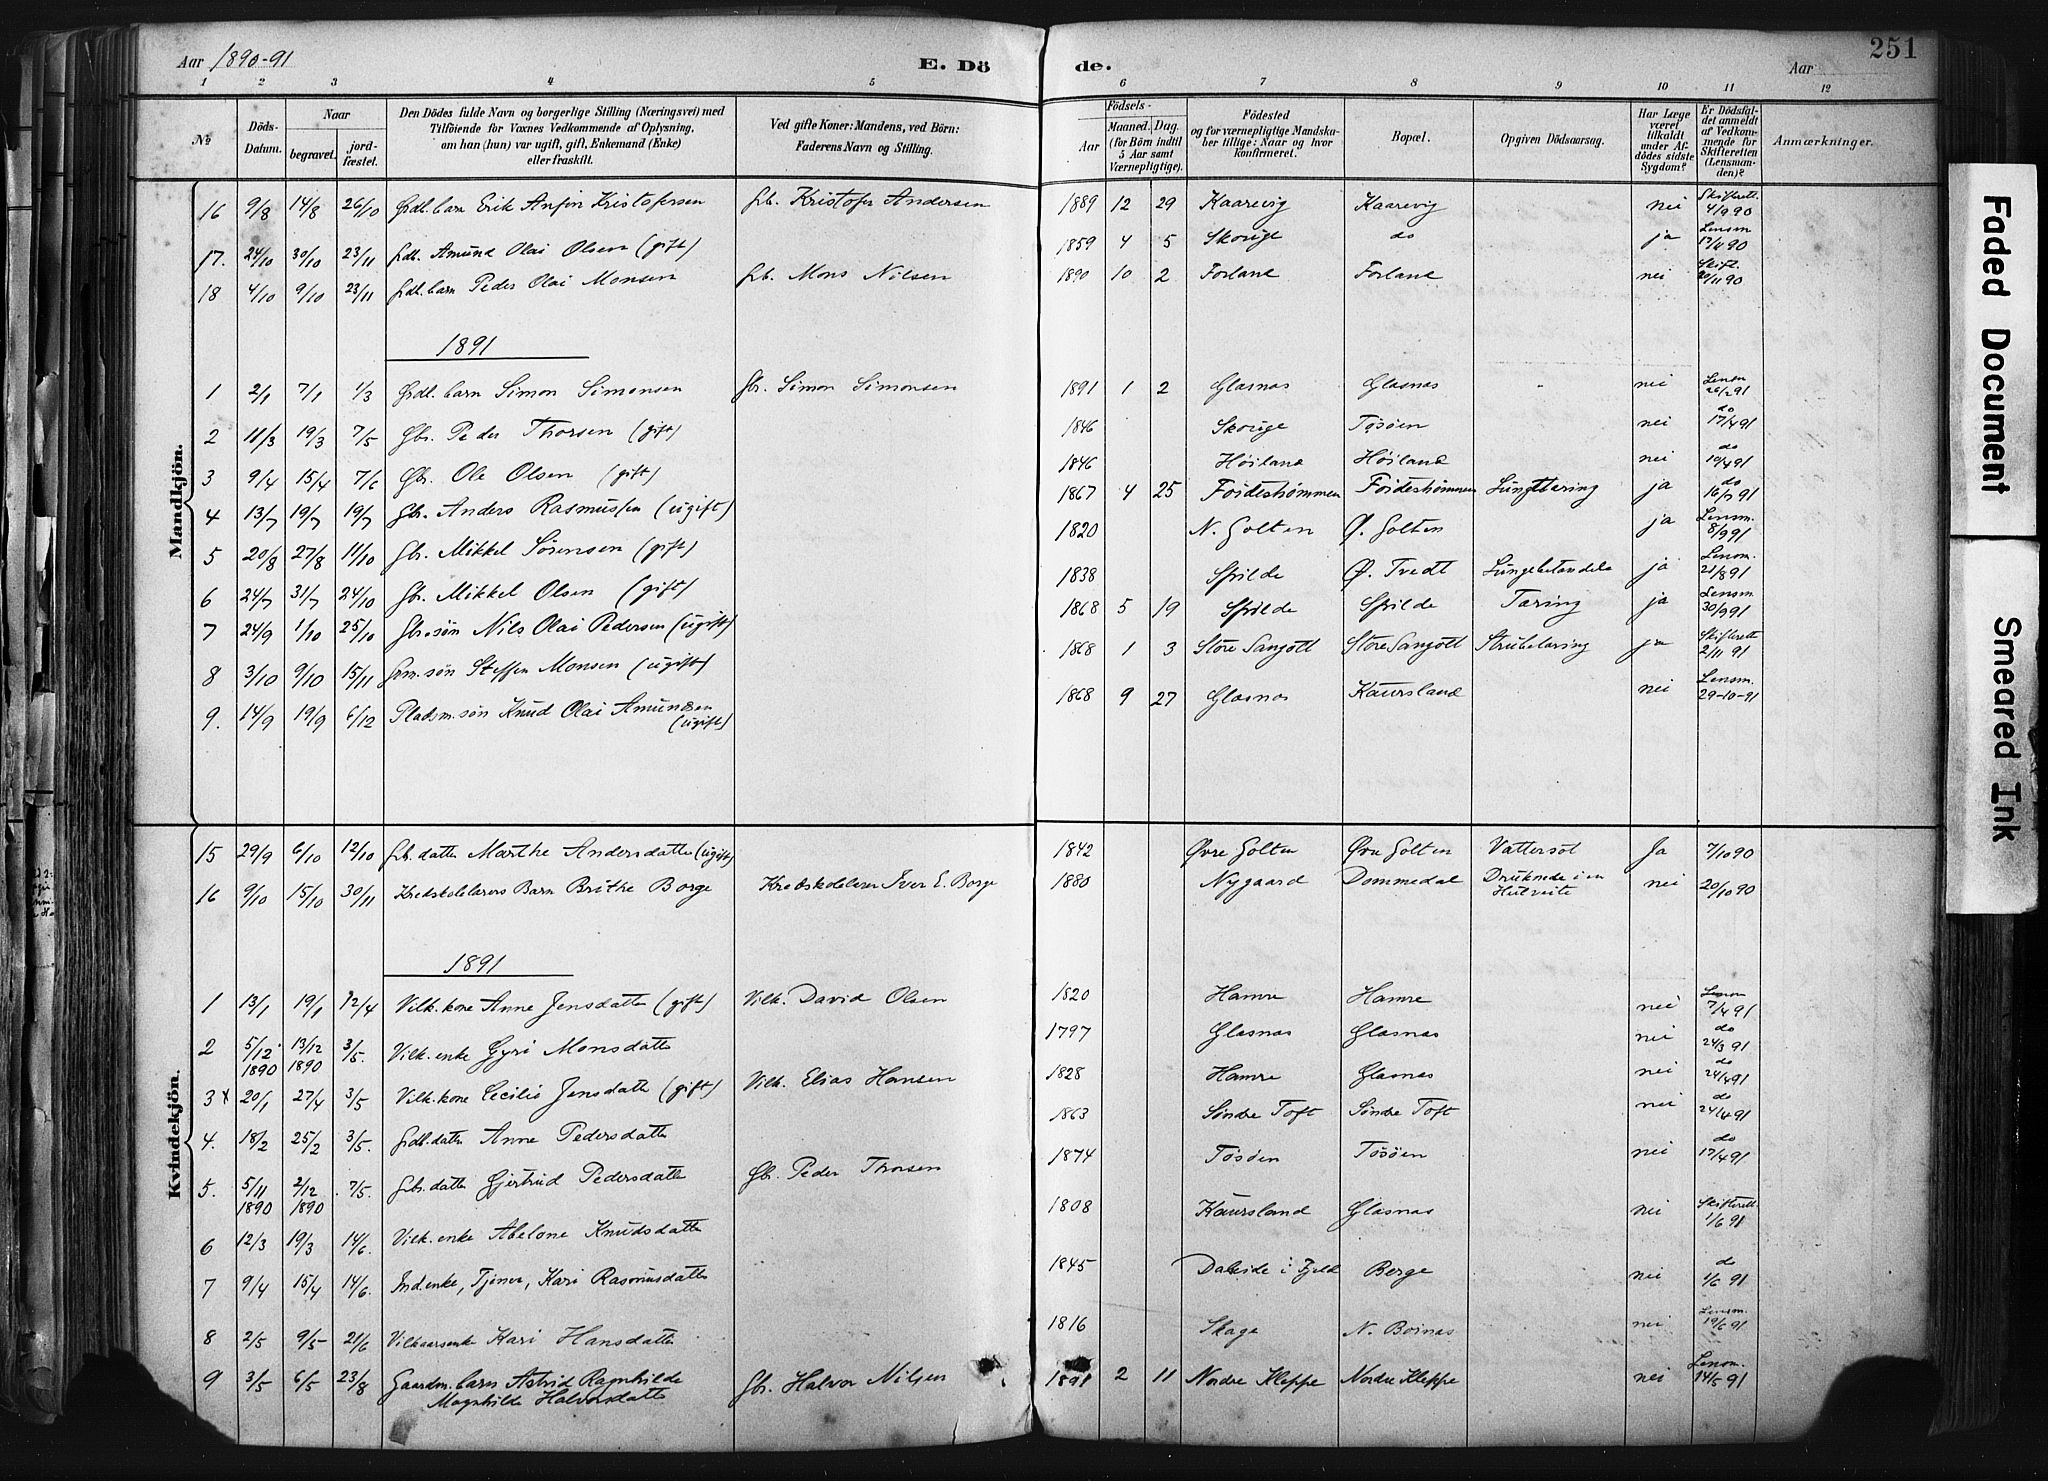 Aar 1890-91
E. Dö
de.
Aar
251
1 2 3 4 5 6 7 8 9 10 11 12
No
Döds-Datum.
Naar
begravet. jord-fæstet.
Den Dödes fulde Navn og borgerlige Stilling (Næringsvei) med
Tilföiende for Voxnes Vedkommende af Oplysning,
om han (hun) var ugift, gift, Enkemand (Enke)
eller fraskilt.
Ved gifte Koner: Mandens, ved Börn:
Faderens Navn og Stilling.
Födsels-
Aar Maaned. Dag.
(for Börn indtil
5 Aar samt
Værnepligtige).
Födested
og for værnepligtige Mandska-
ber tillige: Naar og hvor
konfirmeret.
Bopæl.
Opgiven Dödsaarsag.
Har Læge
været
tilkaldt
under Af-
dödes sidste
Sygdom?
Er Dödsfal-
det anmeldt
af Vedkom-
mende for
Skifteretten
(Lensman-
den)?
Anmærkninger.
Mandkjön.
16 9/8 14/8 26/10 Grdb. barn Erik Anfin Kristofersen Gb. Kristofer Andersen 1889 12 29 Kaarevig Kaarevig nei Skifterett. 4/9 90
17. 24/10 30/10 23/11 Grdb. Amund Olai Olsen (gift) 1859 4 5 Skorge do ja Lensm 90
18 4/10 9/10 23/11 Grdb. barn Peder Olai Monsen Gb. Mons Nilsen 1890 10 2 Forland Forland nei Skift. 20/11 90
1891
1 2/1 7/1 1/3 Grdb. barn Simon Simonsen Gbr. Simon Simonsen 1891 1 2 Glasnas Glasnas - nei Lensm 26/2 91
2 11/3 19/3 7/5 Gbr. Peder Thorsen (gift) 1846 Skorge Tösöen nei do 17/4 91
3 9/4 15/4 7/6 Gbr. Ole Olsen (gift) 1846 Höiland Höiland nei do 10/4 91
4 13/7 19/7 19/7 Gbr. Anders Rasmussen (ugift) 1867 4 25 Foideshömmen Foideshömmen Lungetæring ja do 16/7 91
5 20/8 27/8 11/10 Gbr. Mikkel Sörensen (gift) 1820 N. Golten Ø. Golten ja Lensm. 8/9 91
6 24/7 31/7 24/10 Gbr. Mikkel Olsen (gift) 1838 Spilde Ø. Tvedt Lungebetændelse ja Lensm. 21/8 91
7 24/9 1/10 25/10 Gbr. søn Nils Olai Pedersen (ugift) 1868 5 19 Spilde Spilde Tæring ja Lensm 30/9 91
8 3/10 9/10 15/11 Grm. søn Steffen Monsen (ugift) 1868 1 3 Store Sangolt Store Sangolt Strubetæring ja Skifterett 2/11 91
9. 14/9 19/9 6/12 Pladsm. søn Knud Olai Amundsen 1868 9 27 Glasnas Kaursland nei Lensm. 29-10-91
(ugift)
Kvindekjön.
15 29/9 6/10 12/10 Gb. datter Marthe Andersdatter (ugift) 1842 Øvre Golten Øvre Golten Vattersot Ja 7/10 90
16 9/10 15/10 30/11 Kredskolelærers Barn Brithe Borge Kredskolelærer Iver E. Borge 1880 Nygaard Dommedal Druknede i en nei 20/10 90
1891
1 13/1 19/1 12/4 Vilk. kone Anne Jensdatter (gift) Vilk. David Olsen 1820 Hamre Hamre nei Lensm 7/4 91
2 5/12 1890 13/12 1890 3/5. Vilk. enke Gyri Monsdatter 1797 Glasnas Glasnas nei do 24/3 91
3 x 20/1 27/4 3/5 Vilk. kone Cecilie Jensdatter (gift) Vilk. Elias Hansen 1828 Hamre Glasnas nei do 24/4 91
4. 18/2 25/2 3/5. Grdb. datter Anne Pedersdatter 1863 Söndre Toft Söndre Toft nei do 24/4 91
5. 5/11 1890 2/12 1890 7/5. Gbr. datter Gjertrud Pedersdatter Gb. Peder Thorsen 1874 Tösöen Tösöen nei do 17/4 91
6 12/3 19/3 14/6. Vilk. enke Abelone Knudsdatter 1808 Kaursland Glasnas nei Skifterett. 1/6 91
7 9/4 15/4 14/6. Ind. enke, Tjener, Kari Rasmusdatter 1845 Daleide i Fjeld Berge nei do 1/6 91
8 2/5 9/5 21/6 Vilkaarsenke Kari Hansdatter 1816 Skage N. Boinas nei Lensm. 19/6 91
9 3/5 6/5 23/8 Gaardm. barn Astrid Ragnhilde Gbr. Halvor Nilsen 1891 2 11 Nordre Kleppe Nordre Kleppe nei Lensm. 14/5 91
Magnhilde Halvorsdatter
Faded Document
Smeared Ink